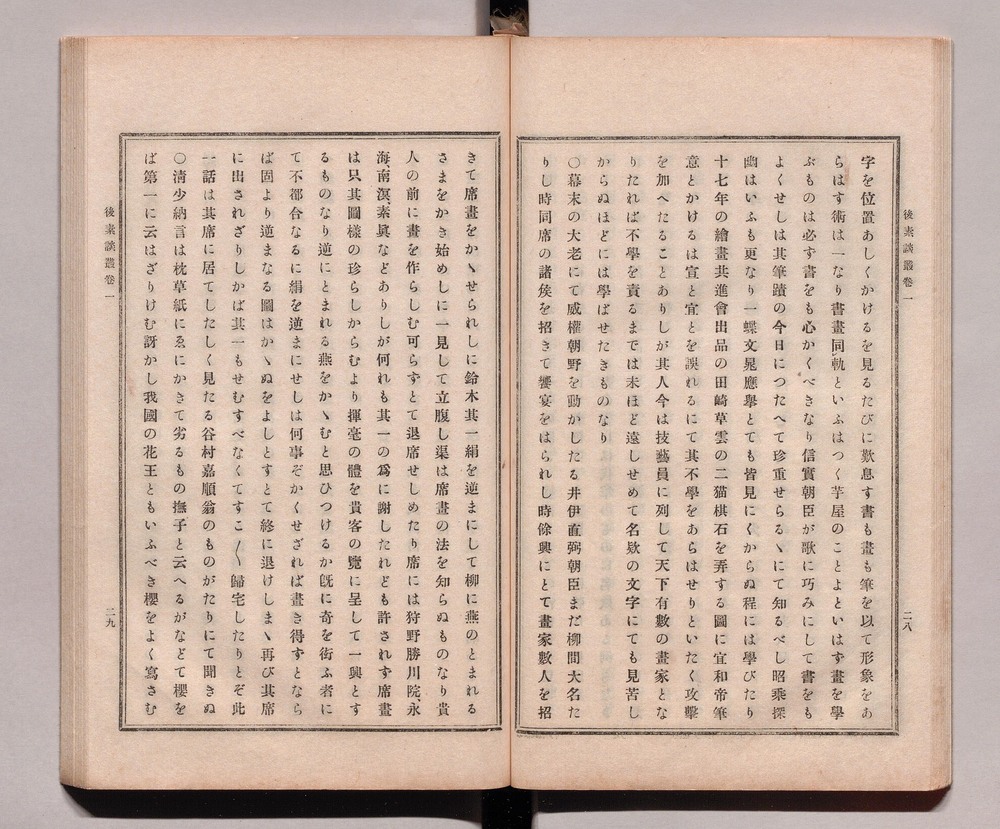 後素談叢卷一
二八
字を位置あしくかけるを見るたびに歎息す書も畫も筆を以て形象をあ
らはす術は一なり書畫同軌といふはつく芋屋のことよといはず畫を學
ぶものは必ず書をも心かくべきなり信實朝臣が歌に巧みにして書をも
よくせしは其筆蹟の今日につたへて珍重せらるゝにて知るべし昭乘探
幽はいふも更なり一蝶文晁應擧とても皆見にくからぬ程には學びたり
十七年の繪畫共進會出品の田崎草雲の二猫棋石を弄する圖に宜和帝筆
意とかけるは宣と宜とを誤れるにて其不學をあらはせりといたく攻擊
を加へたることありしが其人今は技藝員に列して天下有數の畫家とな
りたれば不學を責るまでは未ほど遠しせめて名欵の文字にても見苦し
からぬほどには學ばせたきものなり
〇幕末の大老にて威權朝野を動かしたる井伊直弼朝臣まだ柳間大名た
りし時同席の諸矦を招きて饗宴をはられし時餘興にとて畫家數人を招
きて席畫をかゝせられしに鈴木其一絹を逆まにして柳に燕のとまれる
さまをかき始めしに一見して立腹し渠は席畫の法を知らぬものなり貴
人の前に畫を作らしむ可らずとて退席せしめたり席には狩野勝川院永
海南溟素眞などありしが何れも其一の爲に謝したれども許されず席畫
は只其圖樣の珍らしからむより揮毫の體を貴客の覽に呈して一興とす
るものなり逆にとまれる燕をかゝむと思ひつけるか旣に奇を衒ふ者に
て不都合なるに絹を逆まにせしは何事ぞかくせざれば畫き得ずとなら
ば固より逆まなる圖はかゝぬをよしとすとて終に退けしまゝ再び其席
に出されざりしかば其一もせむすべなくてすこ〳〵歸宅したりとぞ此
一話は其席に居てしたしく見たる谷村嘉順翁のものがたりにて聞きぬ
〇淸少納言は枕草紙にゑにかきて劣るもの撫子と云へるがなどて櫻を
ば第一に云はざりけむ訝かし我國の花王ともいふべき櫻をよく寫さむ
後素談叢卷一
二九